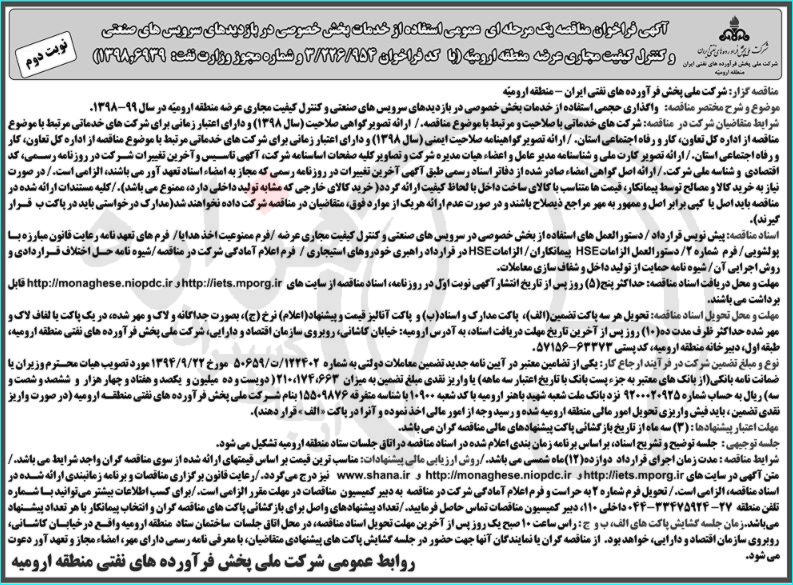 آگهی فراخوان مناقصه یک مرحله ای عمومی استفاده از خدمات بخش خصوصی در بازدیدهای سرویس های صنعتی
و کنترل کیفیت مجاری عرضه منطقه ارومیّه (با کد فراخوان ۳/۲۲۶/۹۵۴ و شماره مجوز وزارت نفت: ۱۳۹۸,۶۹۳۹)
نوبت دوم
شرکت ملی پخش فرآورده های نفتی ایران
شرکت ملی پخش فرآورده های نفتی ایران
منطقه ارومیّه
مناقصه گزار: شرکت ملی پخش فرآورده های نفتی ایران – منطقه ارومیّه
موضوع و شرح مختصر مناقصه: واگذاری حجمی استفاده از خدمات بخش خصوصی در بازدیدهای سرویس های صنعتی و کنترل کیفیت مجاری عرضه منطقه ارومیّه در سال ۹۹-۱۳۹۸.
شرایط متقاضیان شرکت در مناقصه: شرکت های خدماتی با صلاحیت و مرتبط با موضوع مناقصه. / ارائه تصویر گواهی صلاحیت (سال ۱۳۹۸) و دارای اعتبار زمانی برای شرکت های خدماتی مرتبط با موضوع
مناقصه از اداره کل تعاون، کار و رفاه اجتماعی استان. / ارائه تصویر گواهینامه صلاحیت ایمنی (سال ۱۳۹۸) و دارای اعتبار زمانی برای شرکت های خدماتی مرتبط با موضوع مناقصه از اداره کل تعاون، کار
و رفاه اجتماعی استان. / ارائه تصویر کارت ملی و شناسنامه مدیر عامل و اعضاء هیات مدیره شرکت و تصاویر کلیه صفحات اساسنامه شرکت، آگهی تاسیس و آخرین تغییرات شرکت در روزنامه رسمی، کد
اقتصادی و شناسه ملی شرکت. / ارائه اصل گواهی امضاء صادر شده از دفاتر اسناد رسمی طبق آگهی آخرین تغییرات در روزنامه رسمی که مجاز به امضاء اسناد تعهد آور می باشند، الزامی است. / در صورت
نیاز به خرید کالا و مصالح توسط پیمانکار، قیمت ها متناسب با کالای ساخت داخل با لحاظ کیفیت ارائه گردد( خرید کالای خارجی که مشابه تولید داخلی دارد، ممنوع می باشد). / کلیه مستندات ارائه شده در
مناقصه باید اصل یا کپی برابر اصل و ممهور به مهر مراجع ذیصلاح باشند و در صورت عدم ارائه هریک از موارد فوق، متقاضیان در مناقصه شرکت داده نخواهند شد(مدارک درخواستی باید در پاکت ب قرار
گیرند).
اسناد مناقصه: پیش نویس قرارداد / دستورالعمل های استفاده از بخش خصوصی در سرویس های صنعتی و کنترل کیفیت مجاری عرضه /فرم ممنوعیت اخذ هدایا/ فرم های تعهد نامه رعایت قانون مبارزه با
پولشویی/ فرم شماره ۲/ دستور العمل الزامات HSE پیمانکاران/ الزامات HSE در قرارداد راهبری خودروهای استیجاری / فرم اعلام آمادگی شرکت در مناقصه /شیوه نامه حل اختلاف قراردادی و
روش اجرایی آن/ شیوه نامه حمایت از تولید داخل و شفاف سازی معاملات.
مهلت و محل دریافت اسناد مناقصه: حداکثر پنج(۵) روز پس از تاریخ انتشار آگهی نوبت اول در روزنامه، اسناد مناقصه از سایت های http://iets.mporg.ir و http://monaghese.niopdc.ir قابل
برداشت می باشند.
مهلت و محل تحویل اسناد مناقصه: تحویل هر سه پاکت تضمین(الف)، پاکت مدارک و اسناد(ب) و پاکت آنالیز قیمت و پیشنهاد(اعلام) نرخ (ج)، بصورت جداگانه و لاک و مهر شده، در یک پاکت یا لفاف لاک و
مهر شده حداکثر ظرف مدت ده(۱۰) روز پس از آخرین تاریخ مهلت دریافت اسناد، به آدرس ارومیه: خیابان کاشانی، روبروی سازمان اقتصاد و دارایی، شرکت ملی پخش فرآورده های نفتی منطقه ارومیه،
طبقه اول، دبیرخانه منطقه ارومیه، کدپستی ۶۳۳۷۳-۵۷۱۵۶.
نوع و مبلغ تضمین شرکت در فرآیند ارجاع کار: یکی از تضامین معتبر در آیین نامه جدید تضمین معاملات دولتی به شماره ۱۲۳۴۰۲/ت/۵۰۶۵۹ مورخ ۱۳۹۴/۹/۲۲ مورد تصویب هیات محترم وزیران یا
ضمانت نامه بانکی(از بانک های معتبر به جزء پست بانک با تاریخ اعتبار سه ماهه) یا واریز نقدی مبلغ تضمین به میزان ۲۱۰،۱۷۴،۶۶۳ (دویست و ده میلیون و یکصد و هفتاد و چهار هزار و ششصد و شصت و
سه) ریال به حساب شماره ۹۲۰۰۰۲۰۹۲۵ نزد بانک ملت شعبه شهید باهنر ارومیه با کد شعبه ۱۰۹۰۰ با شناسه متفرقه ۱۵۵۰۹۸۷۶ بنام شرکت ملی پخش فرآورده های نفتی منطقه ارومیه (در صورت واریز
نقدی تضمین، باید فیش واریزی تحویل امور مالی منطقه ارومیه شده و رسید وجه از امور مالی اخذ نموده و آنرا در پاکت « الف » قرار دهند).
مهلت اعتبار پیشنهادها : (۳) سه ماه از تاریخ بازگشائی پاکت پیشنهادهای مالی مناقصه گران می باشد.
جلسه توجیهی : جلسه توضیح و تشریح اسناد، براساس برنامه زمان بندی اعلام شده در اسناد مناقصه در اتاق جلسات ستاد منطقه ارومیه تشکیل می شود.
شرایط مناقصه : مدت زمان اجرای قرارداد دوازده(۱۲)ماه شمسی می باشد./روش ارزیابی مالی پیشنهادات: مناسب ترین قیمت بر اساس قیمتهای ارائه شده از سوی مناقصه گران واجد شرایط می باشد./
متن آگهی در سایت های http://iets.mporg.ir و http://monaghese.niopdc.ir و www.shana.ir نیز درج می گردد./ رعایت قانون برگزاری مناقصات و برنامه زمانبندی ارائه شده در
اسناد مناقصه، الزامی است./ تحویل فرم شماره ۲ به حراست و فرم اعلام آمادگی شرکت در مناقصه به دبیر کمیسیون مناقصات در مهلت مقرر الزامی است./ برای کسب اطلاعات بیشتر می توانید با شماره
تلفن منطقه ۲۷- ۳۳۴۷۵۹۲۴-۰۴۴ داخلی ۱۱۰، دبیر کمیسیون مناقصات تماس حاصل فرمایید./ تعداد پیشنهادهای واصل برای بازگشائی پاکت های مناقصه گران و انتخاب پیمانکار با هر تعداد پیشنهاد
می باشد. زمان جلسه گشایش پاکت های الف، ب و ج : راس ساعت ۱۰ صبح یک روز پس از آخرین مهلت تحویل اسناد مناقصه، در محل اتاق جلسات ساختمان ستاد منطقه ارومیه واقع در خیابان کاشانی،
روبروی سازمان اقتصاد و دارایی، خواهد بود. از مناقصه گران یا نمایندگان آنها جهت حضور در جلسه گشایش پاکت های پیشنهادی متقاضیان، با معرفی نامه رسمی دارای مهر، امضاء مجاز و تعهد آور دعوت
می شود.
روابط عمومی شرکت ملی پخش فرآورده های نفتی منطقه ارومیه